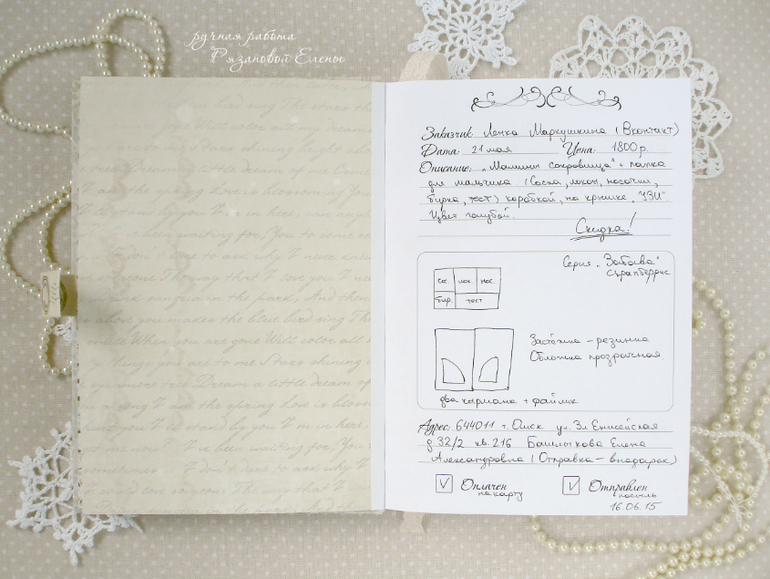 ручная работа
Рязановой Елены
Заказчик: Ленка Маркушкина (Вконтакт)
Дата: 21 мая Цена: 1800р.
Описание: "Мамины сокровища" + папка
для мальчика (Соска, локон, носочки,
бирка, тест) коробкой, на крышке "УЗИ"
Цвет голубой.
Скидка!
Серия "Забава"
скрапберрис
Сос. лок. нос.
бир. тест
Застёжка – резинка
Обложка прозрачная.
два кармана + файлик
Адрес: 644011 г. Омск ул. 3я Енисейская
д 32/2 кв. 216 Башлыкова Елена
Александровна (Отправка – в подарок)
Оплачен Отправлен
на карту посыль
16.06.15